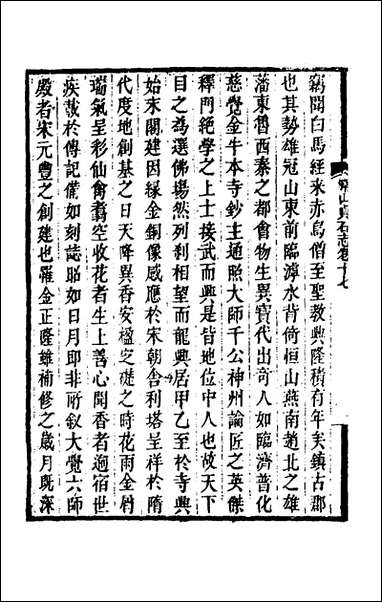 竊聞白馬經來赤烏僧至聖教興隆積有年矣鎮古郡
也其勢雄冠山東前臨滹水背倚恒山燕南趙北之雄
藩東魯西秦之都會物生異寶代出奇人如臨濟普化
慈覺金牛本寺鈔主通照大師千公神州論匠之英傑
釋門絕學之上士接武而興是皆地位中人也故天下
目之為選佛場然列刹相望而龍興居甲乙至於寺興
始末閣建因緣金銅像感應於宋朝舍利塔呈祥於隋
代度地創基之日天降異香安楹之礎之時花雨金屑
瑞氣呈彩仙禽翥空收花者生上善心聞香者迥宿世
疾載於傳記備如刻誌昭如日月即非所敘大覺六師
殿者宋元豐之創建也罹金正隆雖補修之歲月既深
常山貞石志卷十七